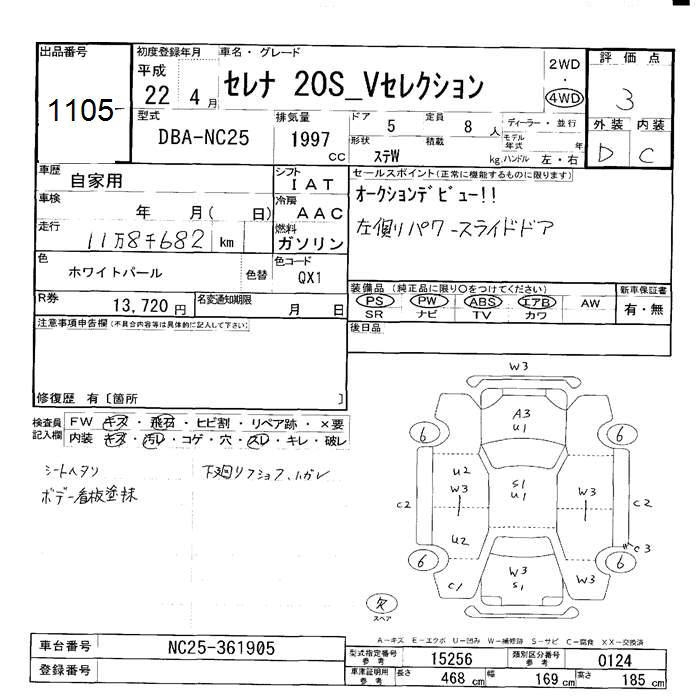 出品番号
1105
初度登録年月
平成
22 4月
車名・グレード
セレナ 20S_Vセレクション
2WD
・
4WD
評価点
3
外装 内装
D C
型式
DBA-NC25
排気量
1997
CC
ドア 5 定員 8 人
形状 積載
ステW kg
ディーラー・並行
モデル年式 年
ハンドル 左・右
車歴
自家用
シフト
IAT
車検
年 月( 日)
冷房
AAC
走行
11万8千682 km
燃料
ガソリン
色
ホワイトパール
色替
色コード
QX1
R券
13,720円
名変通知期限
月 日
セールスポイント(正常に機能するものに限ります)
オークションデビュー!!
左側リパワースライドドア
装備品(純正品に限り○をつけてください)
PS PW ABS エアB AW
SR ナビ TV カワ
新車保証書
有・無
後日品
注意事項申告欄(不具合内容等は具体的に記入して下さい)
修復歴 有〔箇所 〕
検査員記入欄
FW キズ・飛石・ヒビ割・リペア跡・×要
内装 キズ・汚レ・コゲ・穴・スレ・キレ・破レ
シートヘタリ
ボデー看板塗抹
W3
A3
U1
6 6
U2
W3
S1
U1
W3
C2 C2
U2
C3
6 6
C1
W3
S1
W3
欠
スペア
A−キズ E−エクボ U−凹み W−補修跡 S−サビ C−腐食 XX−交換済
車台番号
NC25-361905
登録番号
型式指定番号参考 15256
類別区分番号参考 0124
車庫証明用参考 長さ 468 cm 幅 169 cm 高さ 185 cm